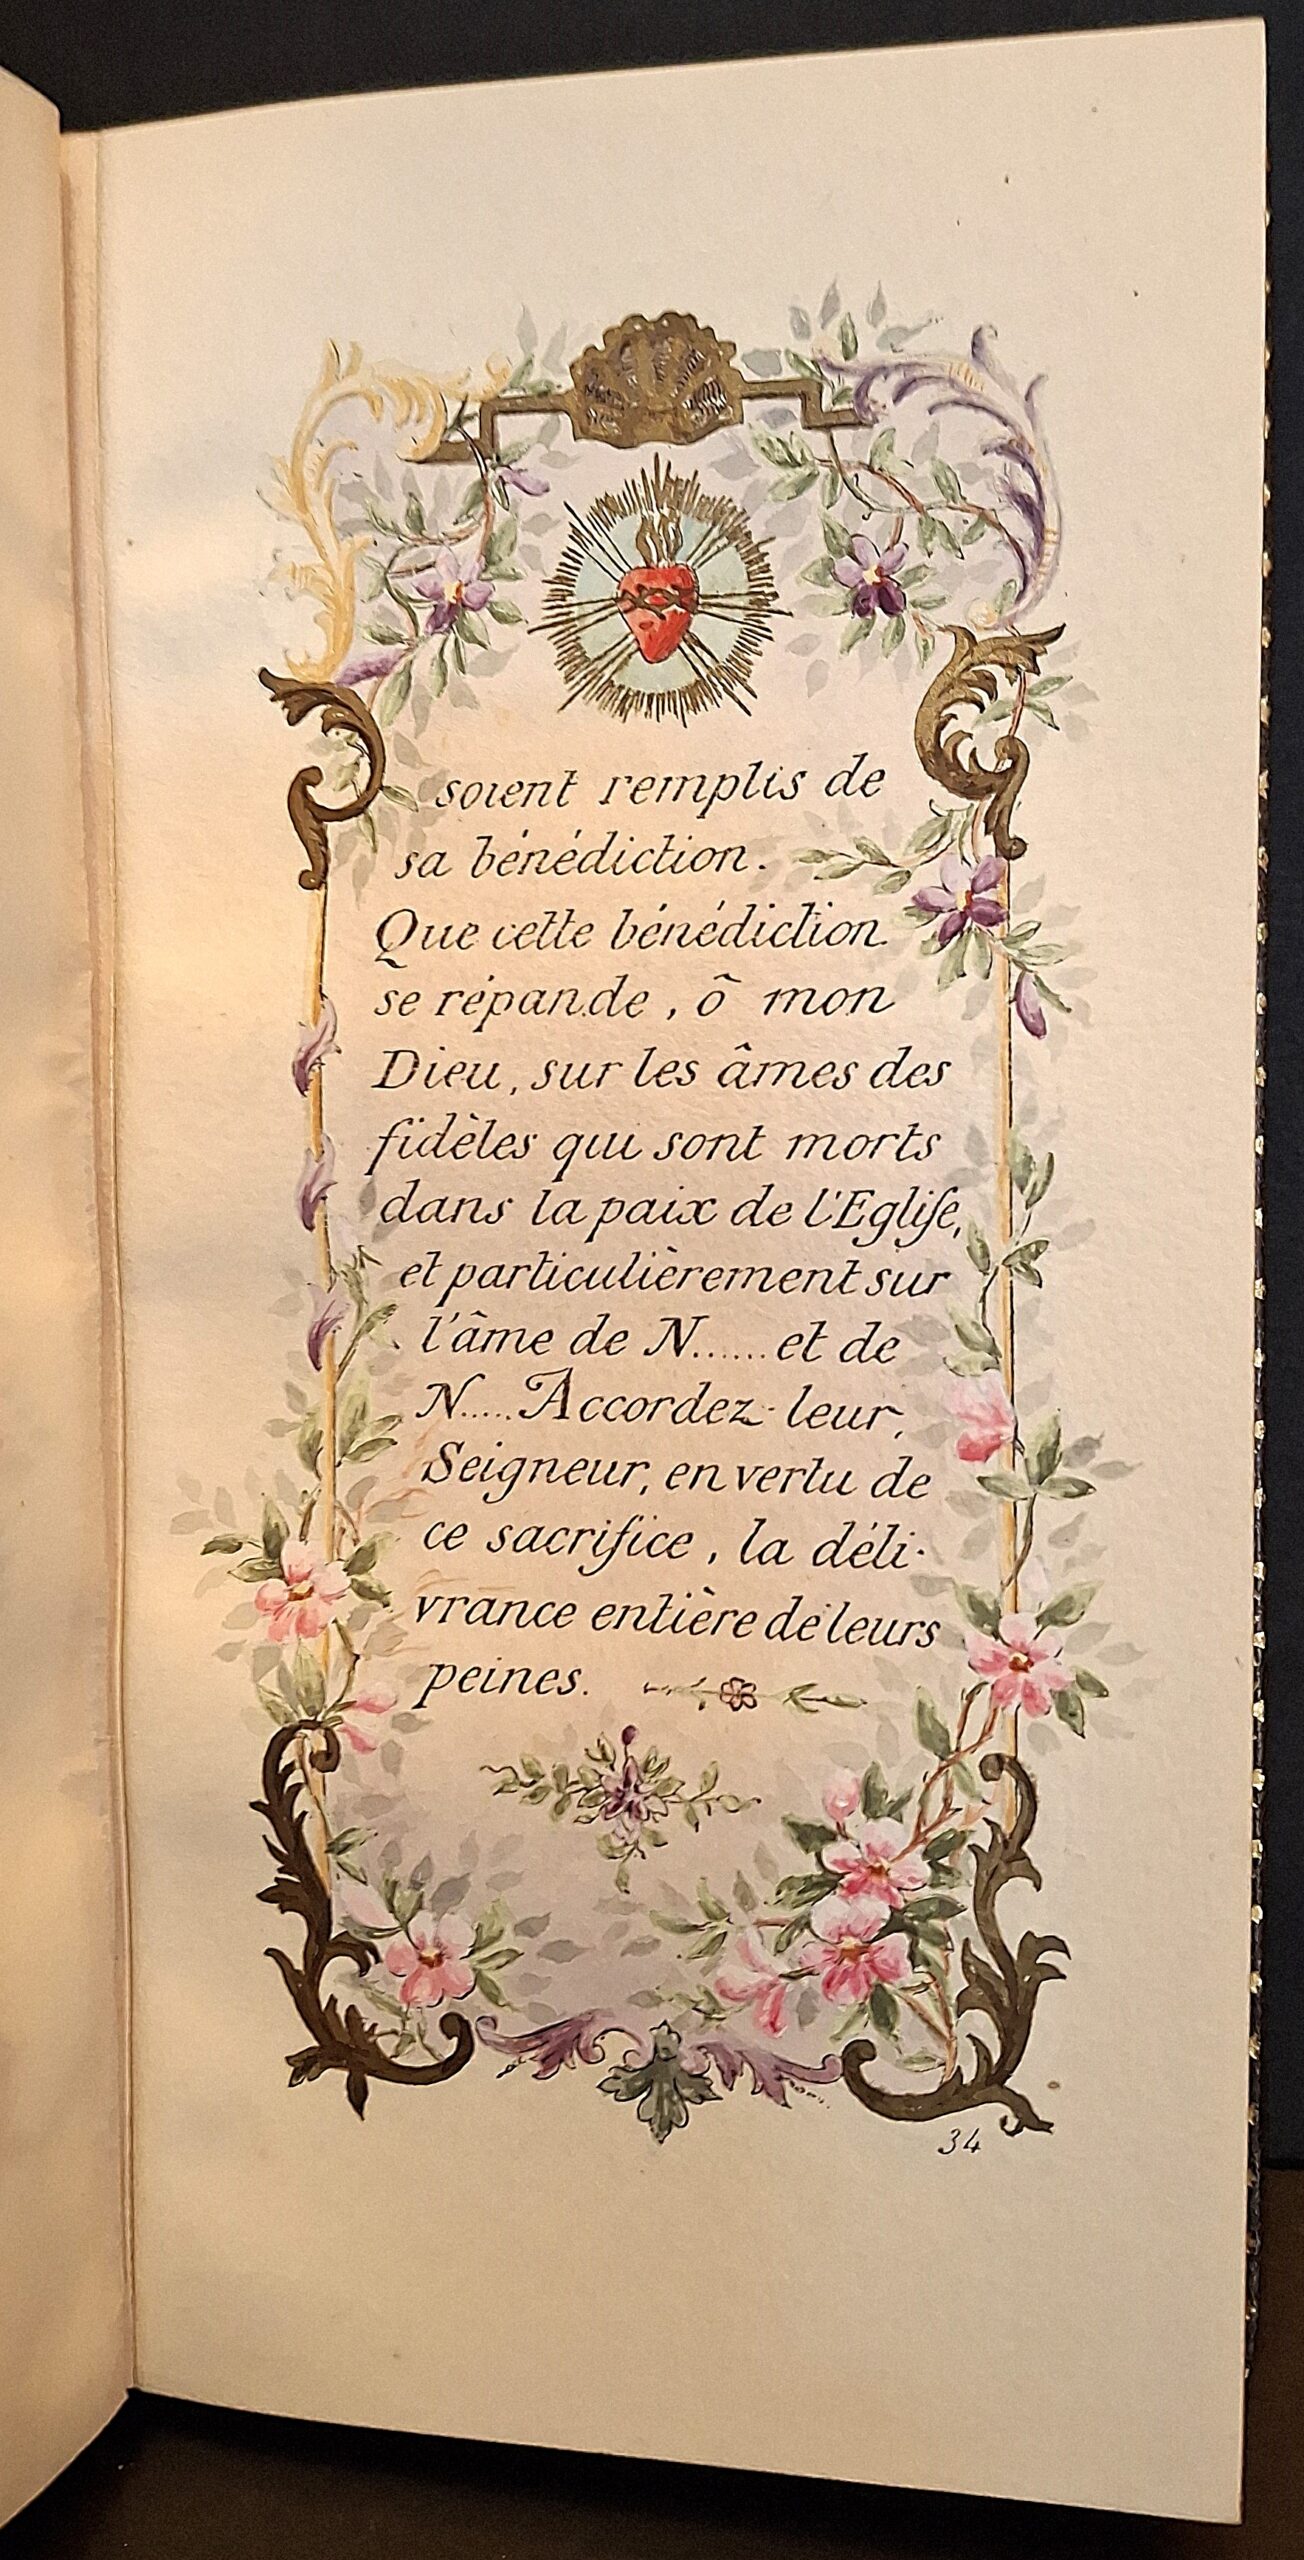 soient remplis de
sa bénédiction.
Que cette bénédiction
se répande, ô mon
Dieu, sur les âmes des
fidèles qui sont morts
dans la paix de l'Egliſe,
et particulièrement sur
l'âme de N...... et de
N..... Accordez-leur,
Seigneur, en vertu de
ce sacrifice, la déli-
vrance entière de leurs
peines.
34